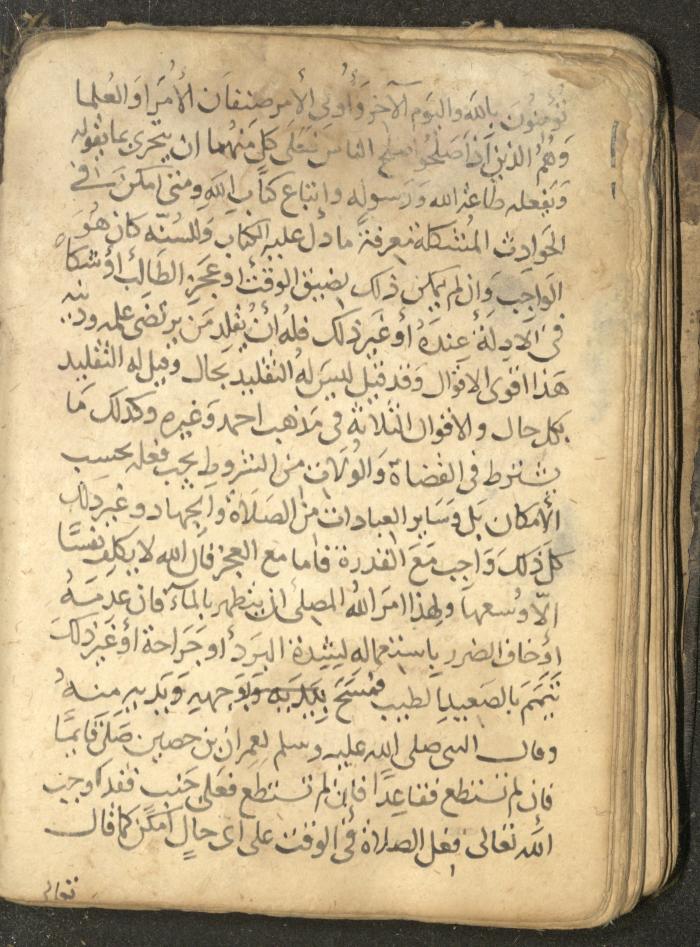 تؤمنون بالله واليوم الآخر وأولى الأمر صنفان الأمرا والعلما
وهم الذين إذا صلحوا صلح الناس فعلى كل منهما ان يتحرى بما يقوله
ويفعله طاعة الله ورسوله واتباع كتاب الله ومتى امكن في
الحوادث المشكلة معرفة ما دل عليه الكتاب والسنة كان هو
الواجب وان لم يمكن ذلك لضيق الوقت أو عجز الطالب أو تكافا
في الادلة عنده أو غير ذلك فله أن يقلد من يرتضى علمه ودينه
هذا اقوى الاقوال وقد قيل ليس له التقليد بحال وقيل له التقليد
بكل حال والاقوال الثلاثة في مذهب احمد وغيره وكذلك ما
يشترط في القضاة والولاة من الشروط يجب فعله بحسب
الأمكان بل وساير العبادات من الصلاة والجهاد وغير ذلك
كل ذلك واجب مع القدرة فاما مع العجز فان الله لا يكلف نفسا
الا وسعها ولهذا امر الله المصلى ان يتطهر بالمآء فان عدمه
أو خاف الضرر باستعماله لشدة البرد أو جراحة أو غير ذلك
تيمم بالصعيد الطيب فمسح بوجهه ويديه منه
وقال النبي صلى الله عليه وسلم لعمران بن حصين صل قايما
فان لم تستطع فقاعدا فان لم تستطع فعلى جنب فقد اوجب
الله تعالى فعل الصلاة في الوقت على اى حال أمكن كما قال
تعالى